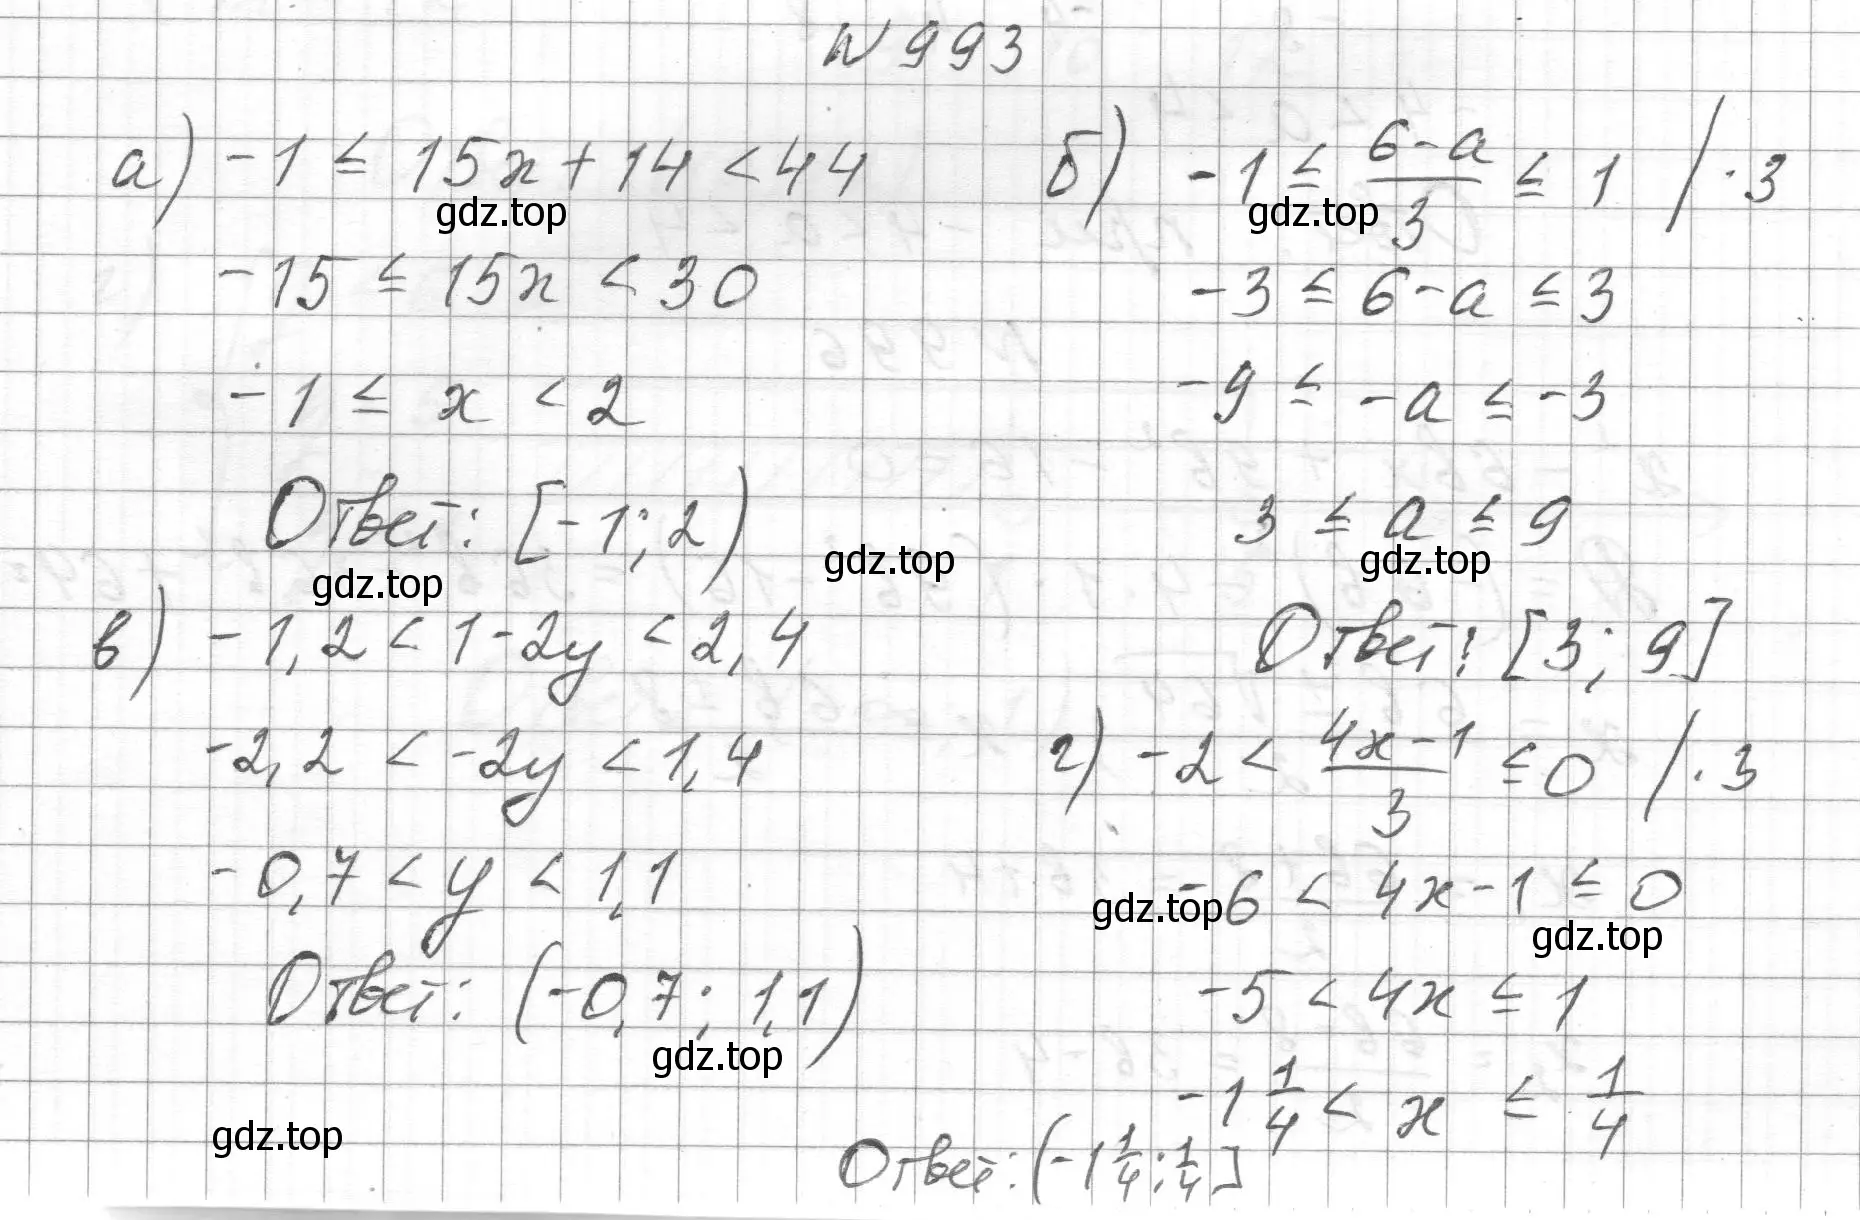 N 993
а) -1 ≤ 15x + 14 < 44
-15 ≤ 15x < 30
-1 ≤ x < 2
Ответ: [-1; 2)
б) -1 ≤ (6-a)/3 ≤ 1 / · 3
-3 ≤ 6-a ≤ 3
-9 ≤ -a ≤ -3
3 ≤ a ≤ 9
Ответ: [3; 9]
в) -1,2 < 1-2y < 2,4
-2,2 < -2y < 1,4
-0,7 < y < 1,1
Ответ: (-0,7; 1,1)
г) -2 < (4x-1)/3 ≤ 0 / · 3
-6 < 4x-1 ≤ 0
-5 < 4x ≤ 1
-1 1/4 < x ≤ 1/4
Ответ: (-1 1/4; 1/4]
gdz.top
gdz.top
gdz.top
gdz.top
gdz.top
gdz.top
gdz.top
gdz.top
gdz.top